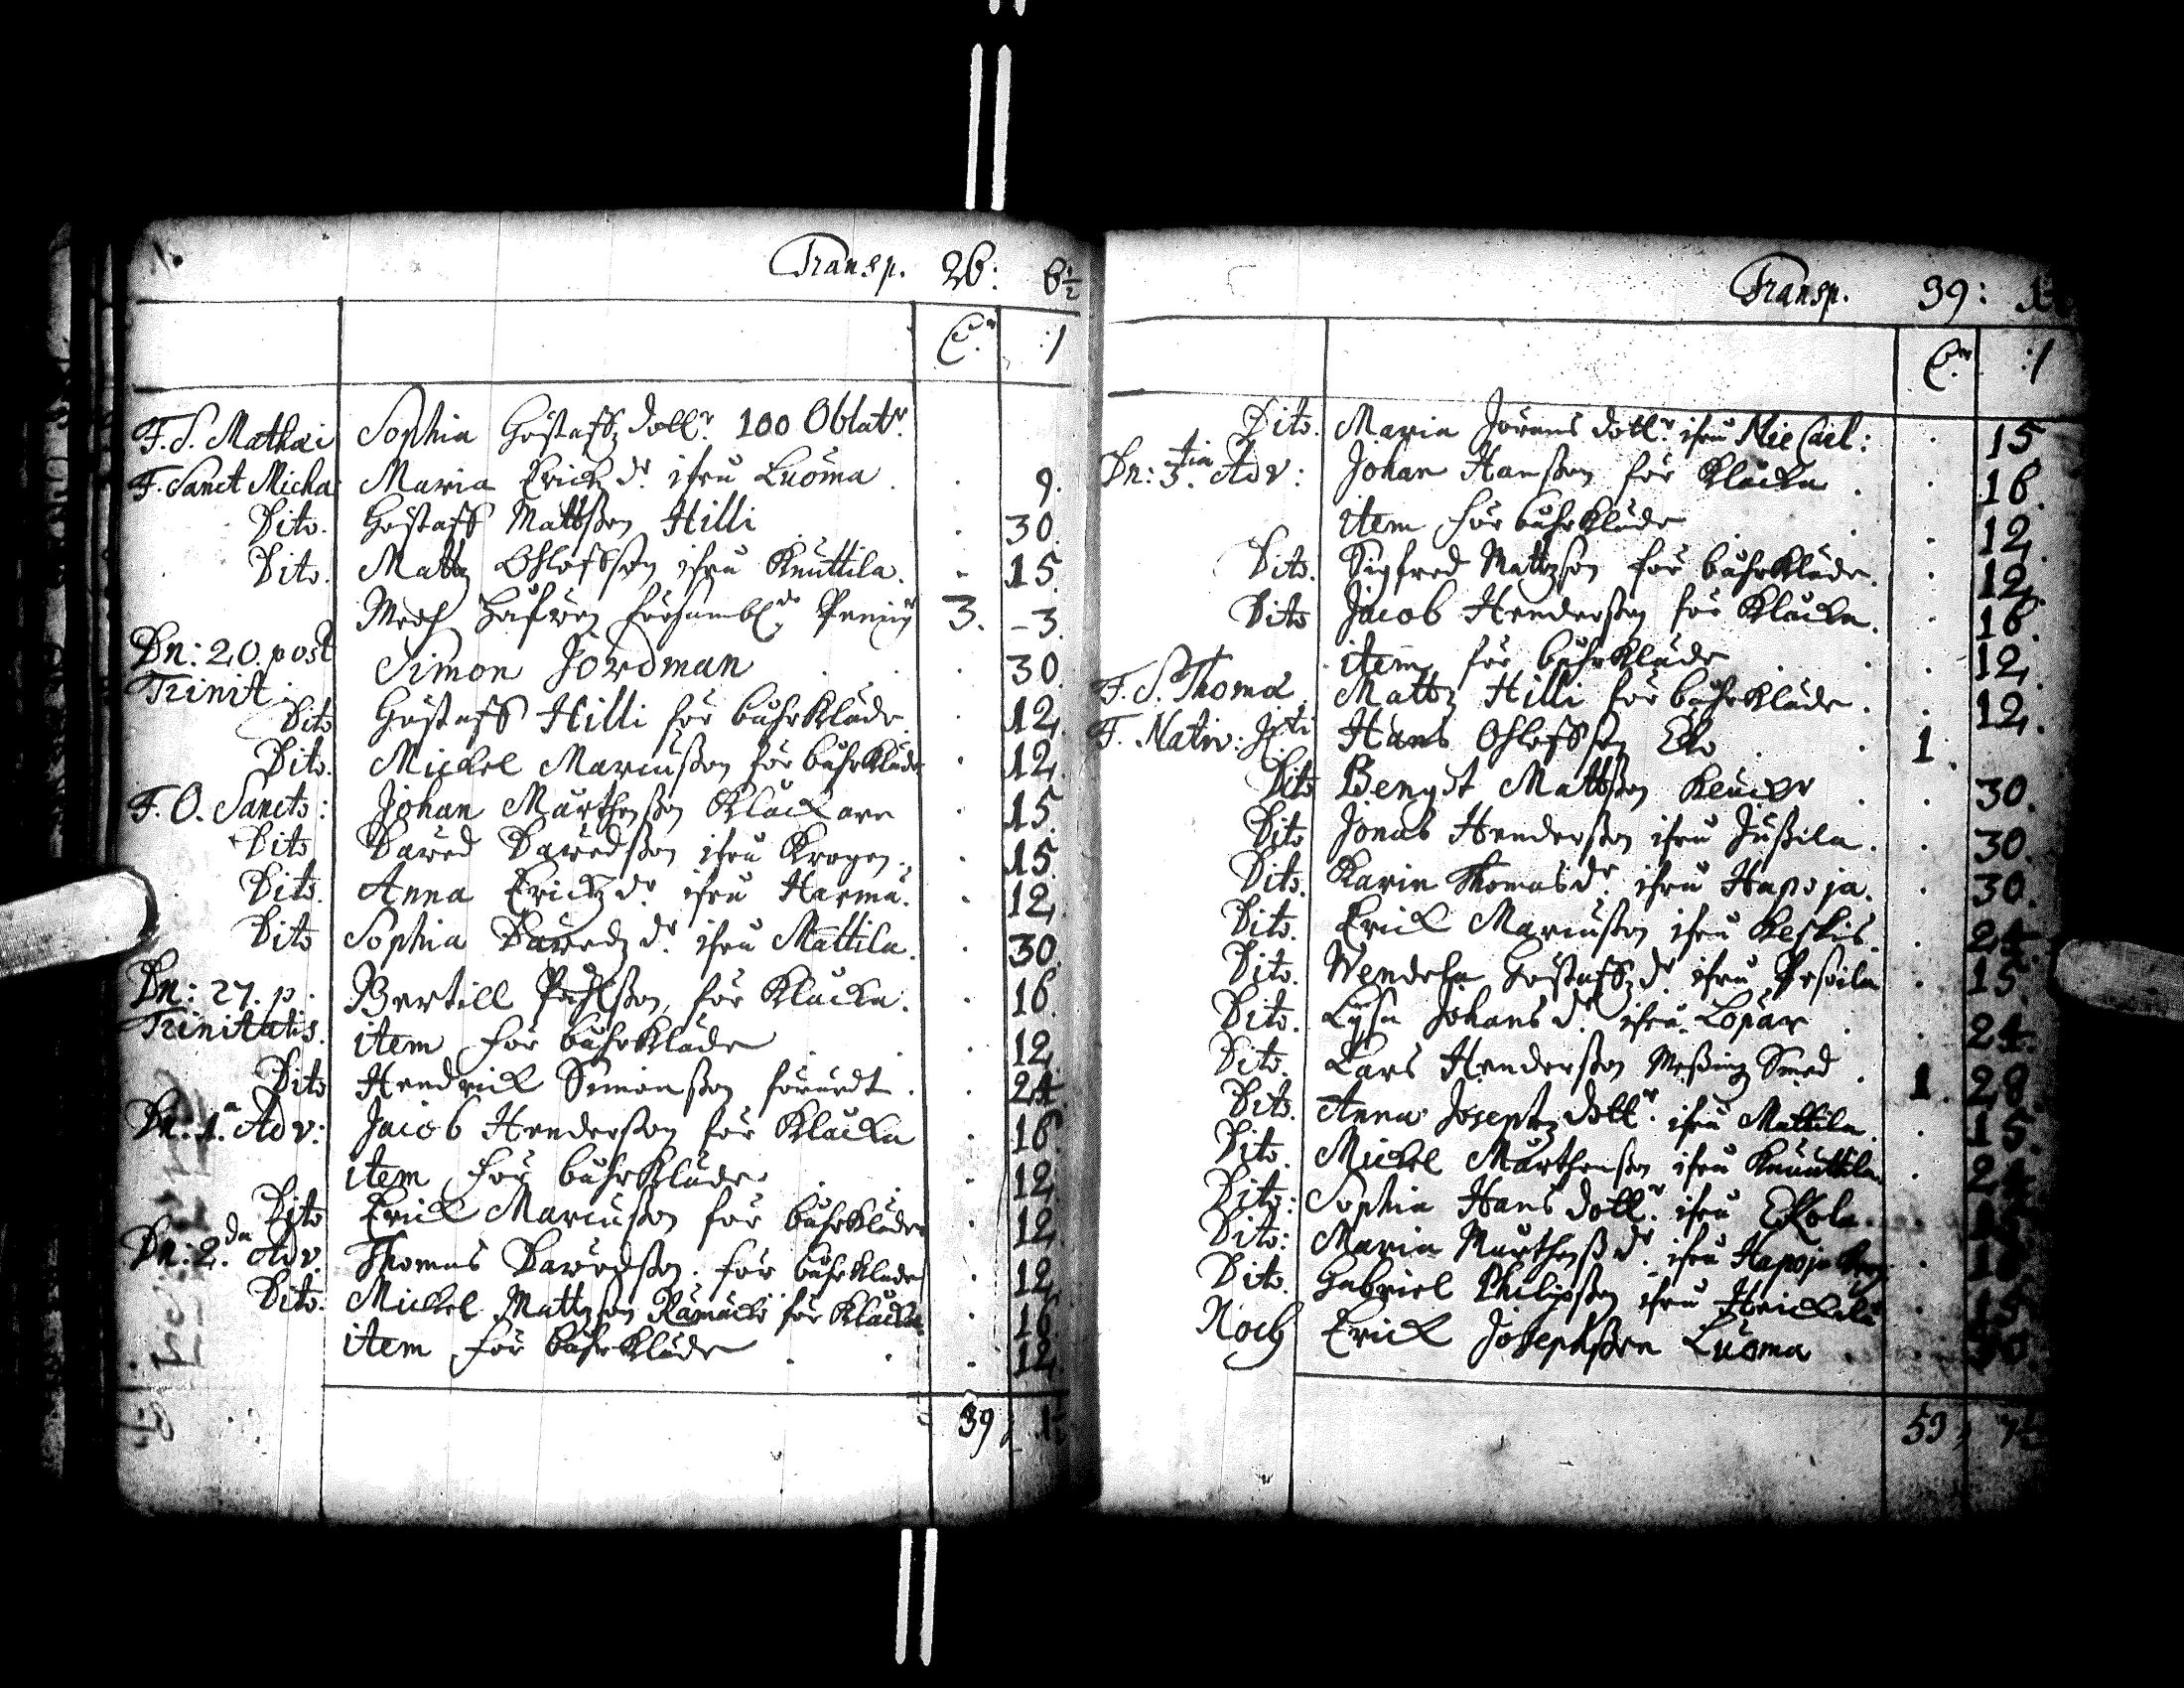 Transp. 26: 6½
C.r :/
F. S. Mathæi Sophia Göstaffz dott.r 100 Oblat.r
F. Sanct Micha: Maria Erichz d.r ifrå Luoma . . 9.
Dito. Göstaff Mattsson Hilli . 30.
Dito. Mattz Ohloffsson ifrå Knuttila. . 15.
Med Håfwen försambl.de Pening.r 3. - 3.
Dn: 20. post Simon Jordman . . 30.
Trinit.
Dito Göstaff Hilli för båhrkläde . 12.
Dito. Mickel Marcusson för båhrkläde . 12.
F. O. Sancto: Johan Mårthensson Klåckare . 15.
Dito Dawed Dawedsson ifrå Krogen. . 15.
Dito. Anna Erichz d.r ifrå Harma. . 12.
Dito Sophia Dawedz d.r ifrå Mattila. . 30.
Dn: 27. p. Bertill Påhlsson för Klåcka. . 16.
Trinitatis. item för båhrkläde . . . 12.
Dito Hendrich Simonsson förärdt . . 24.
Dn: 1.a Adv: Jacob Hendersson för Klåcka . 16.
item för båhrkläde . . . 12.
Dito Erich Marcusson för båhrkläde . 12.
Dn: 2.da Adv. Thomas Dawedsson för båhrkläde . 12.
Dito: Mickel Mattzson Rämäcki för Klåcka. . 16.
item för båhrkläde . . . 12.
39
Transp. 39:
C.r :/
Dito. Maria Jörans dott.r ifrå Nie Carl: . 15.
Dn: 3.tia Adv: Johan Hansson för Klåcka . . 16.
item för båhrkläde . . 12.
Dito. Sigfred Mattzson för båhrkläde. . 12.
Dito Jacob Hendersson för Klåcka. . 16.
item för båhrkläde . . 12.
F. S. Thomæ Mattz Hilli för båhrkläde. . 12.
F. Nativ: Xsti Hans Ohloffson Eko . . 1.
Dito Bengdt Mattsson . . 30.
Dito Jonas Hendersson ifrå Jussila. . 30.
Dito. Karin Thomas d.r ifrå Hapoja. . 30.
Dito. Erich Marcusson ifrå Keskis. . 24.
Dito. Wendela Göstaffz d.r ifrå Pesoila . 15.
Dito. Lysa Johans d.r ifrå Lopar . . 24.
Dito. Lars Hendersson Messing Smed . 1. 28.
Dito. Anna Josephz dott.r ifrå Mattila. . 15.
Dito. Mickel Mårthensson ifrå Knuuttila. . 24.
Dito: Sophia Hans dott.r ifrå Ekola
Dito: Maria Mårthenss d.r ifrå Hapoja
Dito. Gabriel Philipsson ifrå Heickilä . 15.
Noch Erich Josephsson Luoma . . 30.
53